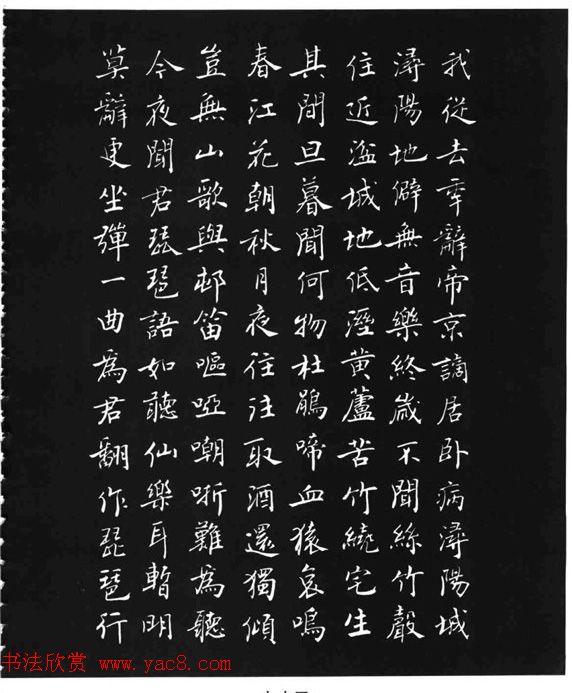 我從去年辭帝京謫居臥病潯陽城
潯陽地僻無音樂終歲不聞絲竹聲
住近湓城地低溼黃蘆苦竹繞宅生
其間旦暮聞何物杜鵑啼血猿哀鳴
春江花朝秋月夜往往取酒還獨傾
豈無山歌與邨笛嘔啞嘲哳難為聽
今夜聞君琵琶語如聽仙樂耳暫明
莫辭更坐彈一曲為君翻作琵琶行
书法欣赏 www.yac8.com